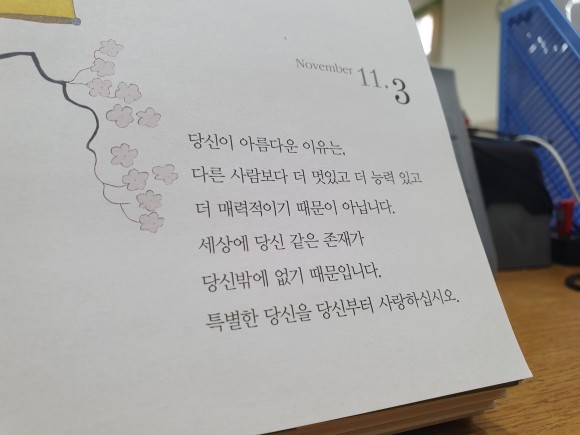 November 11.3
당신이 아름다운 이유는,
다른 사람보다 더 멋있고 더 능력 있고
더 매력적이기 때문이 아닙니다.
세상에 당신 같은 존재가
당신밖에 없기 때문입니다.
특별한 당신을 당신부터 사랑하십시오.